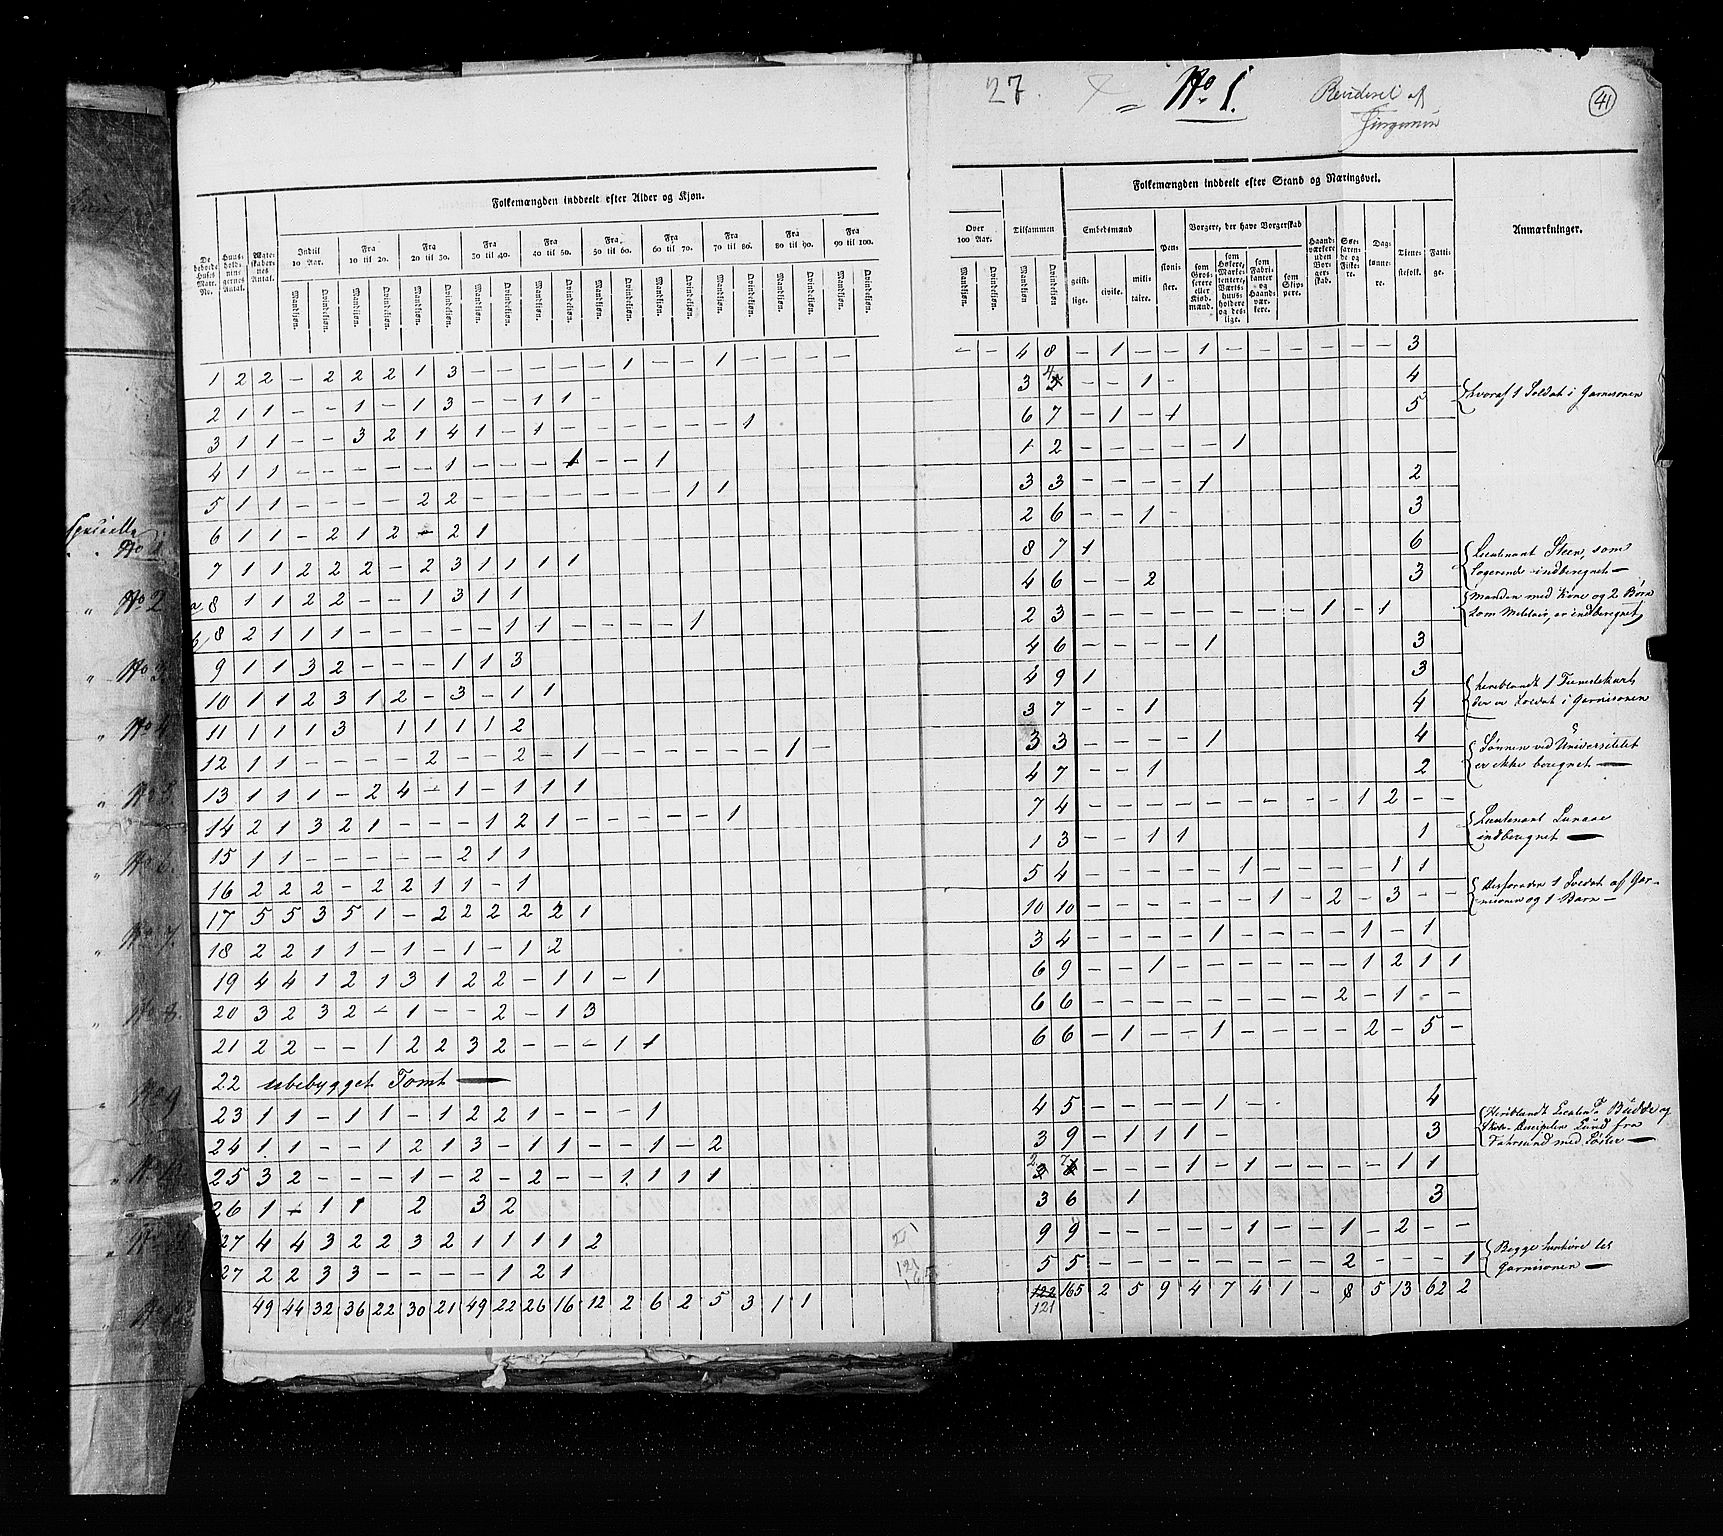 27. No 1. Revideret af
41
Folkemængden inddeelt efter Alder og Kjøn.
De beboede Huses Matr. No.
Huusholdningernes Antal.
Ægteskabernes Antal.
Indtil 10 Aar.
Fra 10 til 20.
Fra 20 til 30.
Fra 30 til 40.
Fra 40 til 50.
Fra 50 til 60.
Fra 60 til 70.
Fra 70 til 80.
Fra 80 til 90.
Fra 90 til 100.
Mandkiøn. Qvindekiøn.
Over 100 Aar.
Tilsammen
Folkemængden inddeelt efter Stand og Næringsvei.
Embedsmænd
geistlige. civile. militaire.
Pensionister.
Borgere, der have Borgerskab
som Grosserere eller Kiøbmænd.
som Høkere, Marketentere, Værtshuusholdere og deslige.
som Fabrikanter og Haandværkere.
som Skippere.
Haandværkere uden Borgerskab.
Søefarende og Fiskere.
Daglønnere.
Tienestefolk.
Fattige.
Anmærkninger.
1 2 2 – 2 2 2 1 3 – – – – – 1 – – 1 – – – –
– – 4 8 – 1 – – 1 – – – – – – 3
2 1 1 – – 1 – 1 3 – – 1 1 –
3 4 – – 1 – 4
hvoraf 1 Soldat i Garnisonen
3 1 1 – – 3 2 1 4 1 – 1 – – – – – – 1
6 7 – 1 – 1 5
4 1 1 – – – – – 1 – – – 1 – – 1
1 2 – – – – – 1
5 1 1 – – – – 2 2 – – – – – – – 1 1
3 3 – – – – 1 2
6 1 1 – 2 1 2 – 2 1
2 6 – – 1 – 3
7 1 1 2 2 2 – 2 3 1 1 1 1
8 7 1 6
a 8 1 1 2 2 – – 1 3 1 1
4 6 – – 2 3
Lieutenant Steen, som
Logerende indberegnet –
b 8 2 1 1 1 – – – – – 1 1 – – – – 1
2 3 – – – – – – – – 1 – 1
Manden med Kone og 2 Børn
som Militair, er indberegnet
9 1 1 3 2 – – – 1 1 3
4 6 – – – – 1 3
10 1 1 2 3 1 2 – 3 – 1 1
4 9 1 3
11 1 1 1 3 1 1 1 1 2
3 7 – – 1 4
der er Soldat i Garnisonen
12 1 1 – – – – 2 – – 2 – 1 – – – – – – 1 –
3 3 – – – – 1 4
Sønnen ved Universitetet
er ikke beregnet –
13 1 1 1 – 2 4 – 1 – 1 1 1
4 7 – – 1 2
14 2 1 3 2 1 – – – 1 2 1 – – – – – 1
7 4 – – – – – – – – – 1 2 – –
15 1 1 – – – – – 2 1 1
1 3 – – 1 1 1
Lieutenant
indberegnet –
16 2 2 2 – 2 2 1 1 – 1
5 4 – – – – – 1 – – – – 1 1
17 5 5 3 5 1 – 2 2 2 2 2 1
10 10 – – – – – – 1 – 2 – 3 – –
1 Soldat af Garnisonen
og 1 Barn –
18 2 2 1 1 – 1 – 1 – 1 2
3 4 – – – – 1 – – – – 1 – 1
19 4 4 1 2 1 3 1 2 2 – 1 1 – 1
6 9 – – 1 – – – – – – 1 2 1 1
20 3 2 3 2 – 1 – – 2 – 1 3
6 6 – – – – – – – – 2 – 1 – –
21 2 2 – – 1 2 2 3 2 – – – 1 1
6 6 – 1 – – 1 – – – – 2 – 5 –
22 ubebygget Tomt –
23 1 1 – 1 1 – 1 2 2 1 – – – 1
4 5 – – – – 1 – – 4
24 1 1 – – 1 2 1 3 – 1 1 – – 1 – 2
3 9 – 1 1 1 – 3
25 3 2 – – – 1 – 2 – 2 – – 1 1 1 1
2 7 – – – – 1 – 1 – – – – 1 1
26 1 – 1 1 2 3 2
3 6 1 3
27 4 4 3 2 2 3 2 1 1 1 1 2
9 9 – – – – – 1 – – 1 – 2 – –
27 2 2 3 3 – – – – 1 2 1
5 5 – – – – – – – – 2 – – – 1
Garnisonen –
49 44 32 36 22 30 21 49 22 26 16 12 2 6 2 5 3 1 1
122 165 2 5 9 4 7 4 1 – 8 5 13 62 2
121
specielle
No 1.
" No 2
" No 3.
" No 4